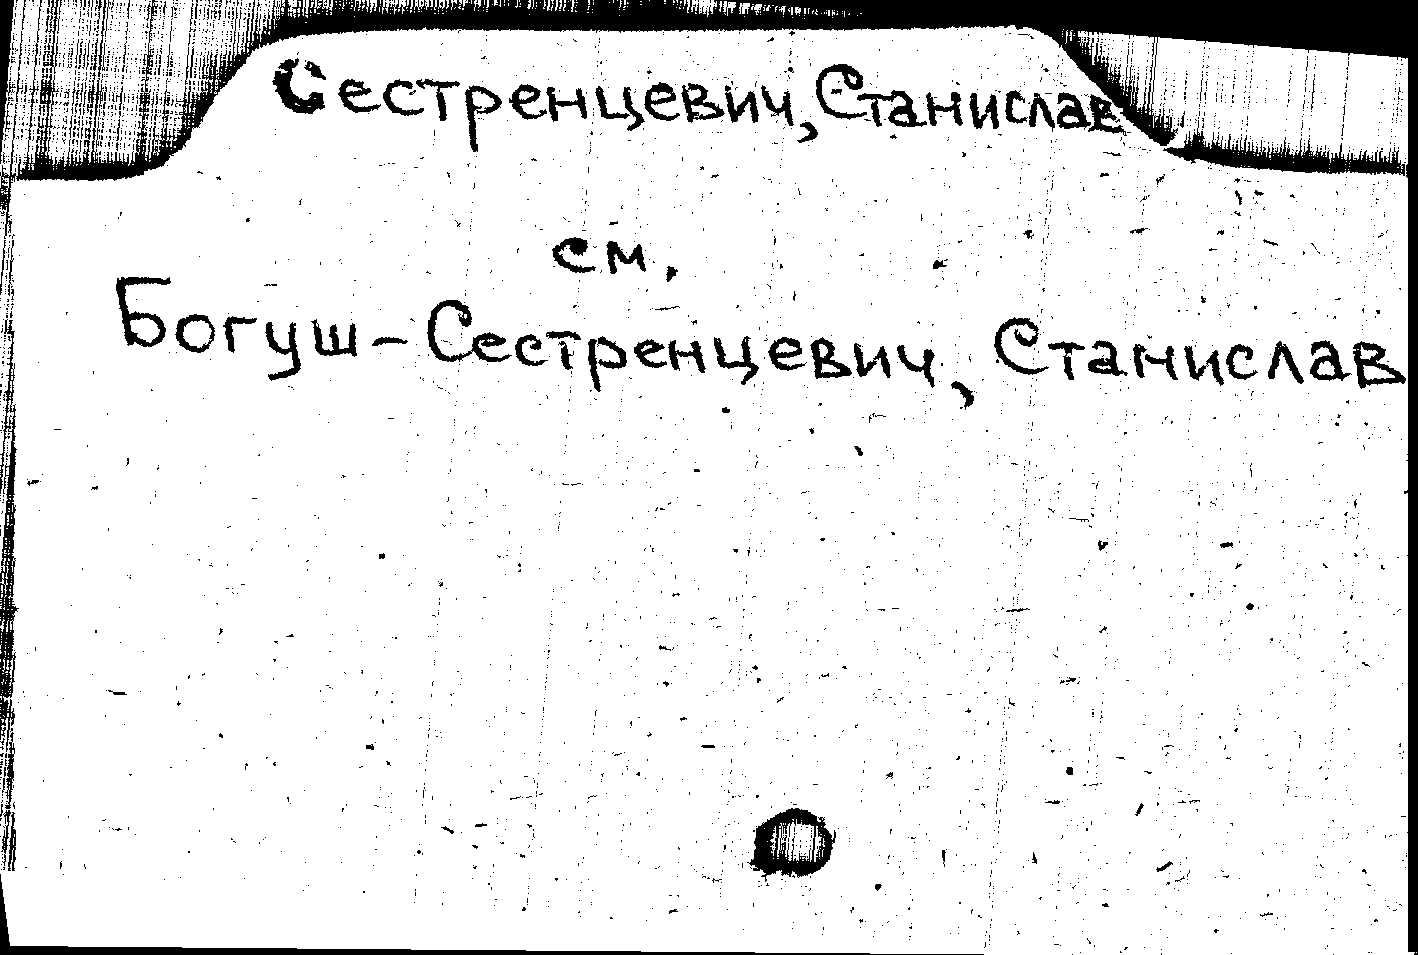 Сестренцевич, Станислав
см.
Богуш-Сестренцевич, Станислав